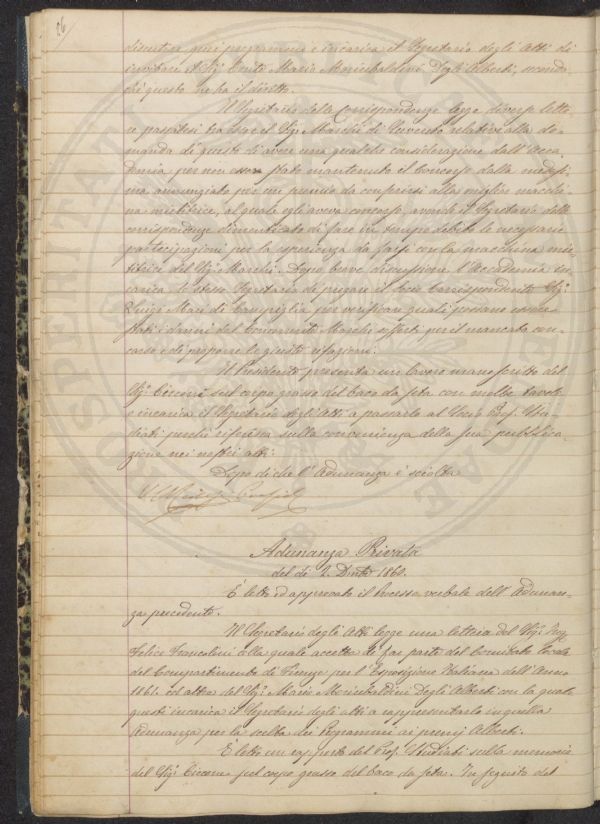 26
discutere quei programmi e incarica il Segretario degli Atti di
invitare il Sig. Conte Mario Moricubaldini Degli Alberti, secondo
chè questo ne ha il diritto.
Il Segretario delle Corrispondenze legge diverse lette-
re passatesi tra esso e il Sig. Marchi di relative alla do-
manda di questo di avere una qualche considerazione dall'Acca-
demia per non essere stato mantenuto il Concorso dalla medesi-
ma annunziato per un premio da conferirsi alla miglior macchi-
na mietitrice, al quale egli aveva concorso, avendo il Segretario delle
corrispondenze dimenticato di fare in tempo debito le necessarie
partecipazioni per la esperienza da farsi con la macchina mie-
titrice del Sig. Marchi. Dopo breve discussione l'Accademia in-
carica lo stesso Segretario di pregare il Socio Corrispondente Sig.
Luigi Mari di Campiglia per verificare quali possano essere
stati i danni del Concorrente Marchi sofferti per il mancato con-
corso e di proporre le giuste rifazioni.
Il Presidente presenta un lavoro manoscritto del
Sig. Ciccone sul corpo grasso del baco da seta con molte tavole
e incarica il Segretario degli Atti a passarlo al Socio Prof. Stu-
diati perchè riferisca sulla convenienza della sua pubblica-
zione nei nostri atti.
Dopo di che l'Adunanza è sciolta
Adunanza Privata
del dì 2. Dicbre 1860.
È letto ed approvato il Processo verbale dell'Adunan-
za precedente.
Il Segretario degli Atti legge una lettera del Sig. Ing.
Felice Francolini colla quale accetta di far parte del Comitato locale
del Compartimento di Firenze per l'Esposizione Italiana dell'Anno
1861. ed altra del Sig. Mario Moricubaldini Degli Alberti con la quale
questi incarica il Segretario degli atti a rappresentarlo in quella
Adunanza per la scelta dei Programmi ai premj Alberti.
È letto un rapporto del Prof. Studiati sulla memoria
del Sig. Ciccone sul corpo grasso del baco da seta. In seguito del